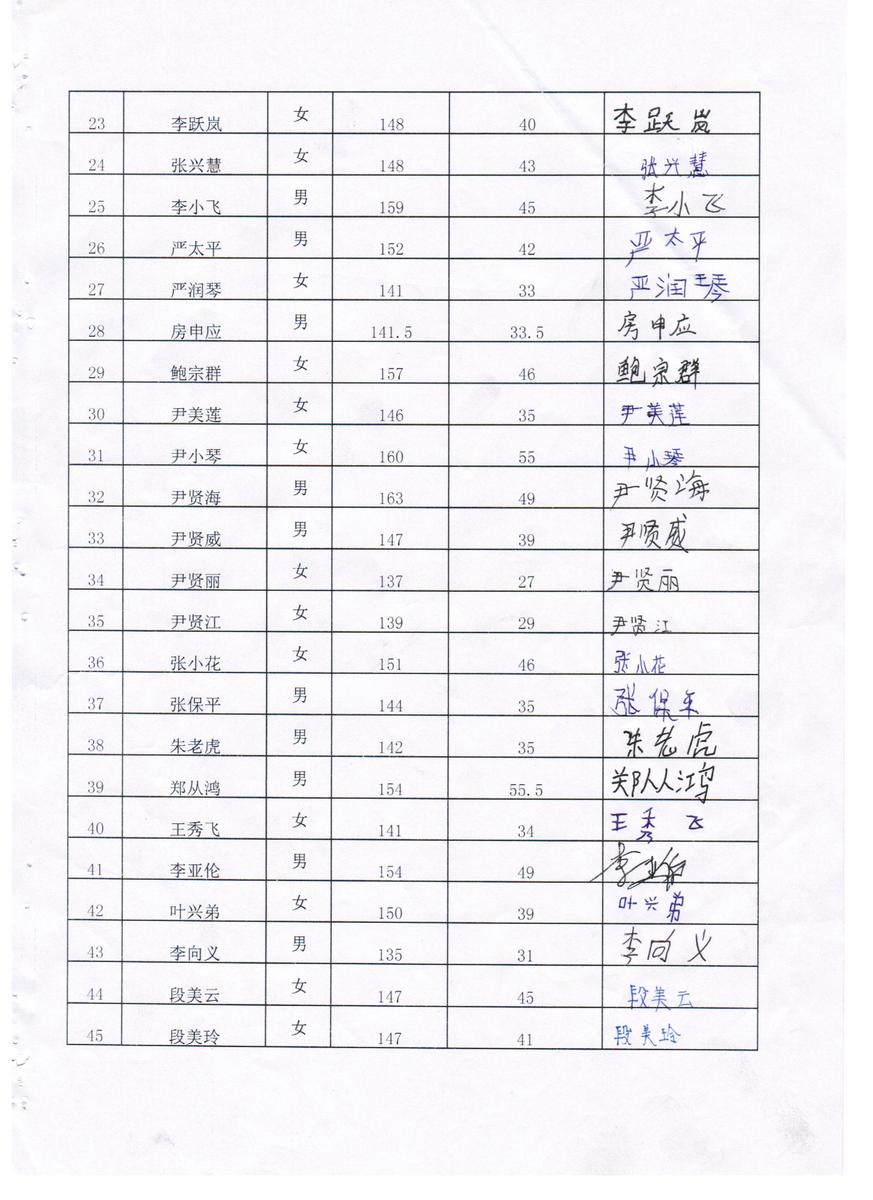 23 李跃岚 女 148 40 李跃岚
24 张兴慧 女 148 43 张兴慧
25 李小飞 男 159 45 李小飞
26 严太平 男 152 42 严太平
27 严润琴 女 141 33 严润琴
28 房申应 男 141.5 33.5 房申应
29 鲍宗群 女 157 46 鲍宗群
30 尹美莲 女 146 35 尹美莲
31 尹小琴 女 160 55 尹小琴
32 尹贤海 男 163 49 尹贤海
33 尹贤威 男 147 39 尹贤威
34 尹贤丽 女 137 27 尹贤丽
35 尹贤江 女 139 29 尹贤江
36 张小花 女 151 46 张小花
37 张保平 男 144 35 张保平
38 朱老虎 男 142 35 朱老虎
39 郑从鸿 男 154 55.5 郑从鸿
40 王秀飞 女 141 34 王秀飞
41 李亚伦 男 154 49 李亚伦
42 叶兴弟 女 150 39 叶兴弟
43 李向义 男 135 31 李向义
44 段美云 女 147 45 段美云
45 段美玲 女 147 41 段美玲